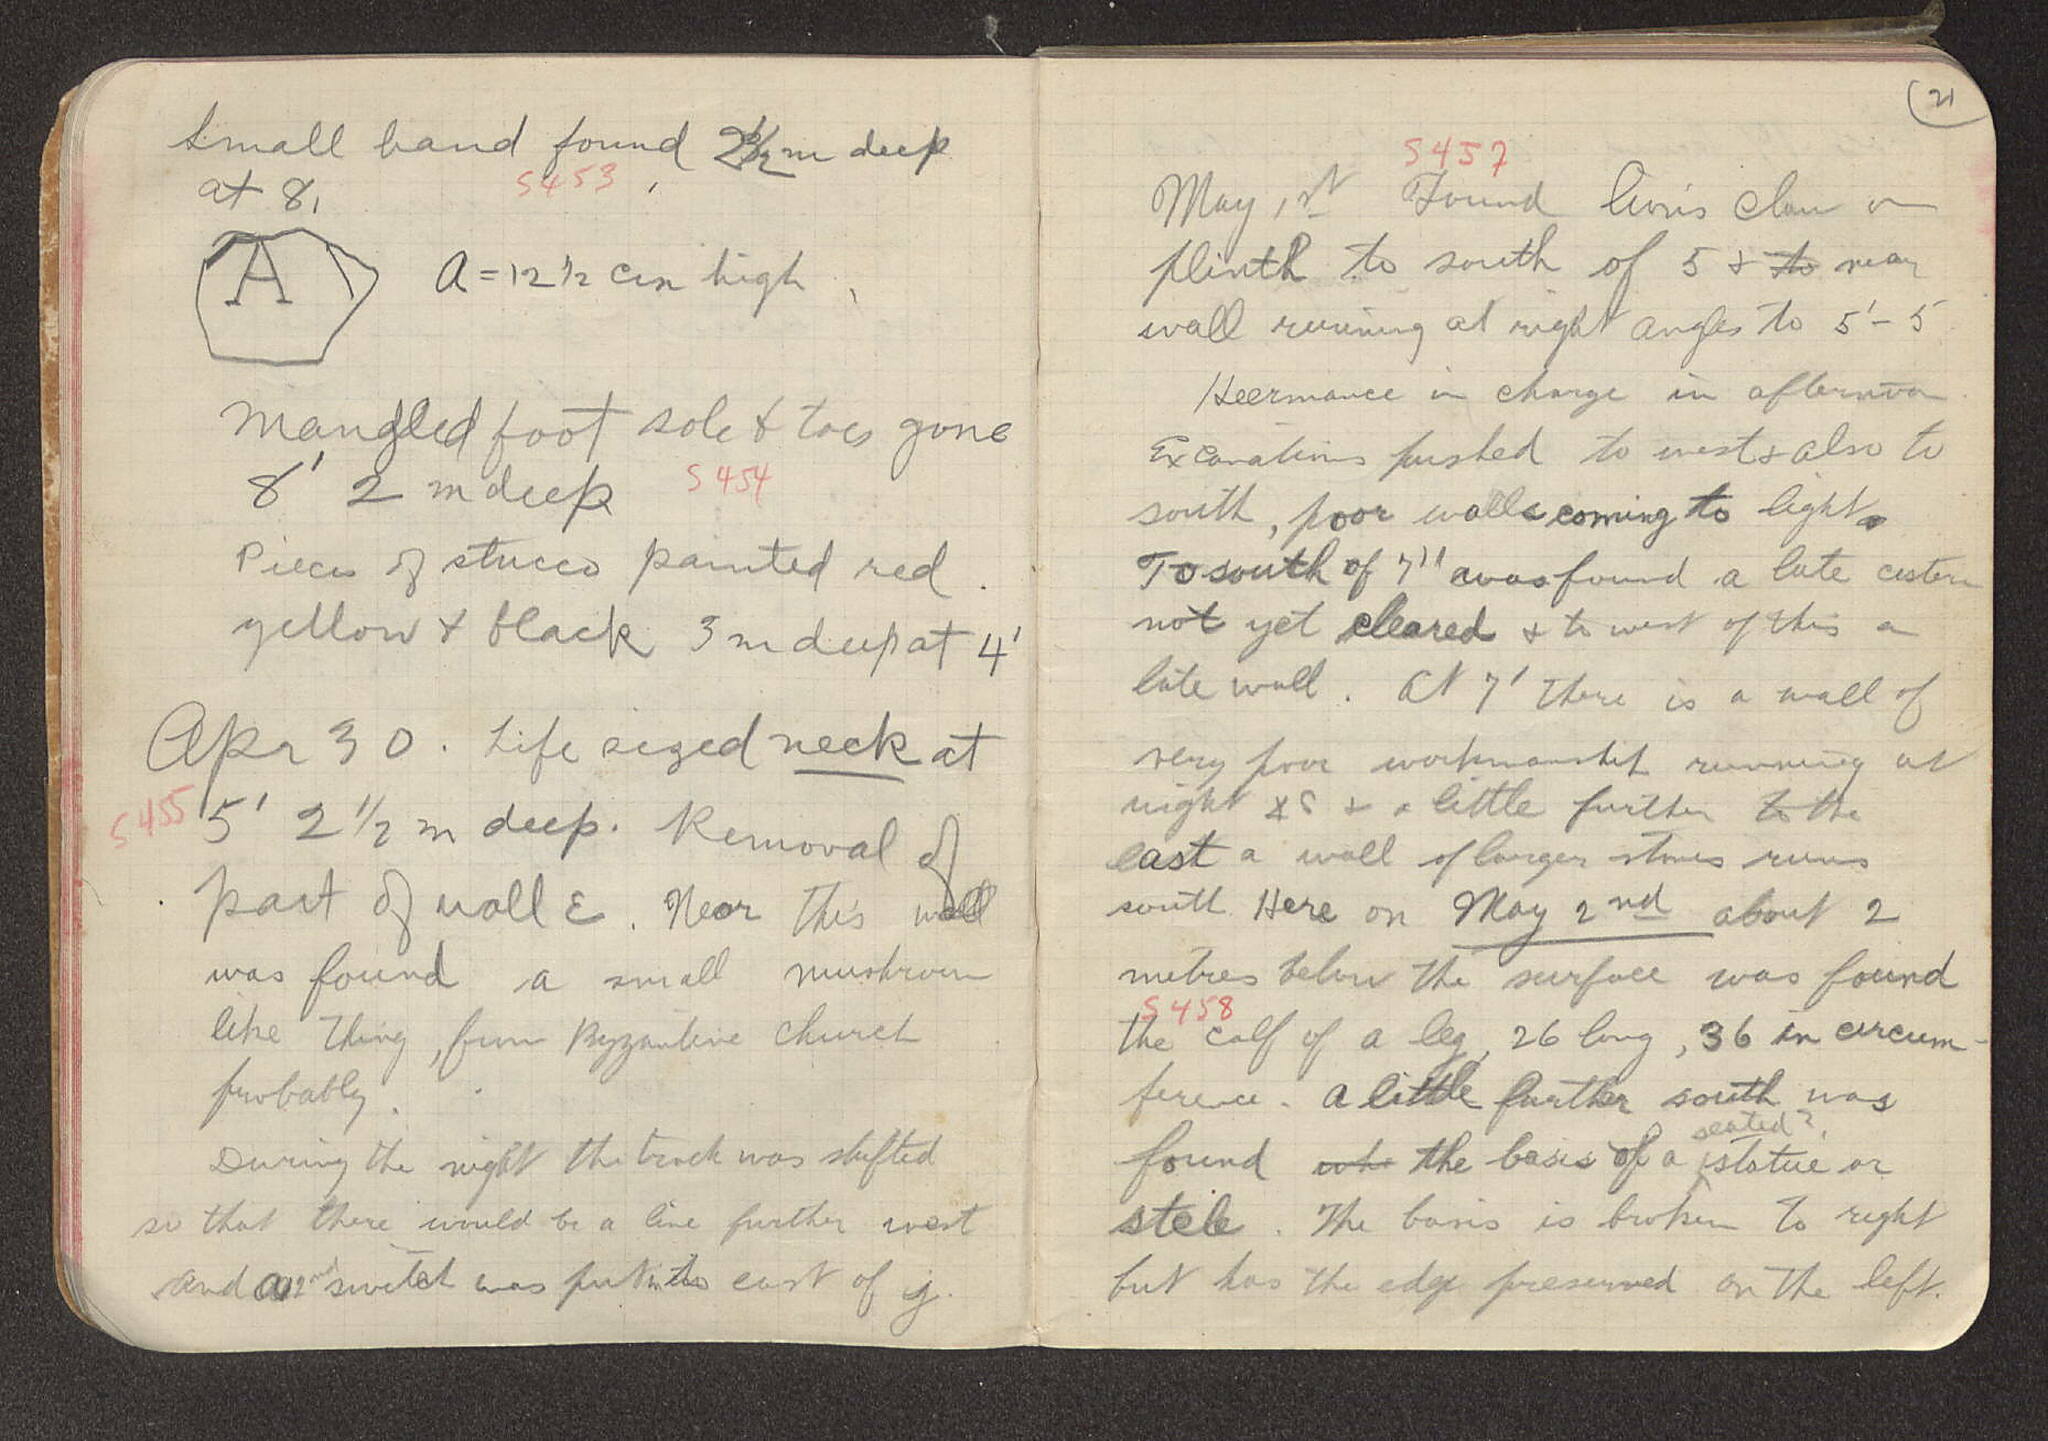 Small hand found 2 1/2 m deep
S453
at 8,
A
A = 12 1/2 cm high
Mangled foot sole & toes gone
8' 2 m deep S454
Pieces of stucco painted red
yellow & black 3 m deep at 4'
Apr 30. Life sized neck at
S455 5' 2 1/2 m deep. Removal of
part of wall ε. Near this wall
was found a small mushroom
like thing, from Byzantine church
probably.
During the night the track was shifted
so that there would be a line further west
and a 2nd switch was put in to east of j.
21
S457
May 1st Found lion's claw on
plinth to south of 5 & to near
wall running at right angles to 5'-5
Heermance in charge in afternoon
Excavations pushed to west & also to
south, poor walls coming to light.
To south of 7'' was found a late cistern
not yet cleared & to west of this a
late wall. At 7' there is a wall of
very poor workmanship running at
right & a little further to the
east a wall of larger stones runs
south. Here on May 2nd about 2
metres below the surface was found
S458
the calf of a leg, 26 long, 36 in circum-
ference. A little further south was
seated?
found the basis of a statue or
stele. The basis is broken to right
but has the edge preserved on the left.